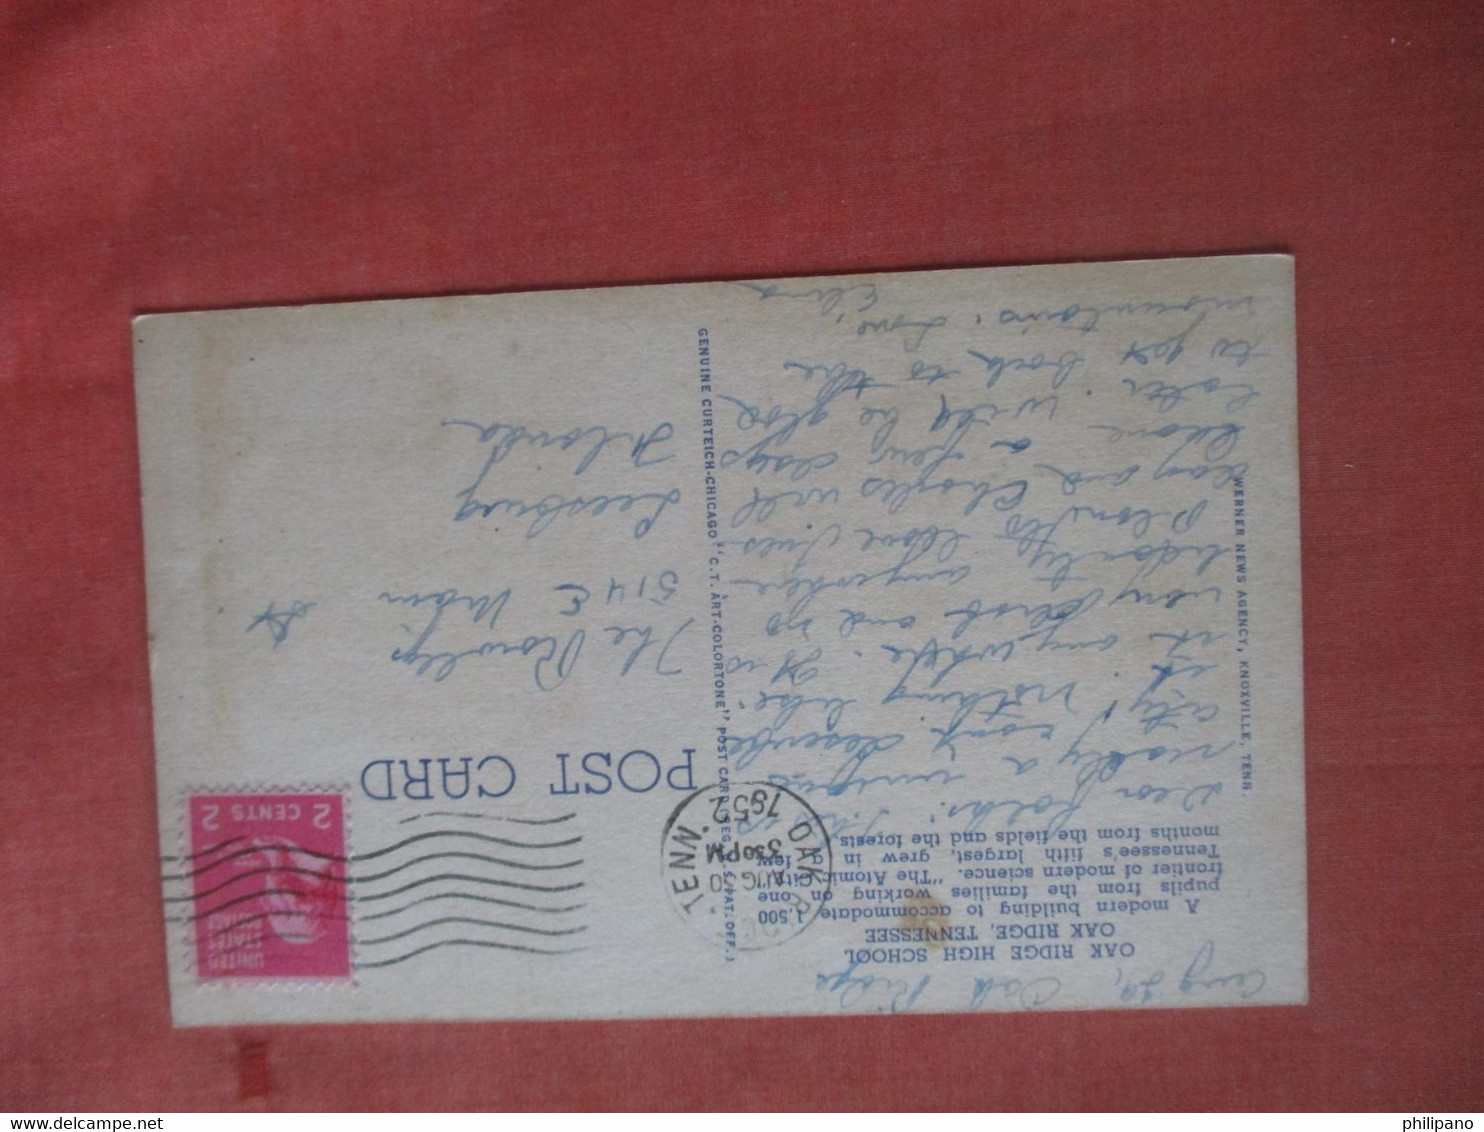 Aug 29, Oak Ridge
OAK RIDGE HIGH SCHOOL
OAK RIDGE, TENNESSEE
A modern building to accommodate 1,500
pupils from the families working on one
frontier of modern science. "The Atomic City,"
Tennessee's fifth largest, grew in a few
months from the fields and the forests.
Dear Folks: This is
really a unique
city! can't describe
it, nothing like
it anywhere. It is
very and no
anywhere
leave Tues-
day and Charles will
leave a few days
later. Will be glad
to get back to the
mountains. Love,
Elma
WERNER NEWS AGENCY, KNOXVILLE, TENN.
GENUINE CURTEICH-CHICAGO "C.T. ART-COLORTONE" POST CARD (REG. U.S. PAT. OFF.)
POST CARD
OAK RIDGE TENN.
AUG 30
3 30 PM
1952
UNITED
STATES
POSTAGE
2 CENTS 2
The Rowleys
514 E Main St
Leesburg
Florida
philipano